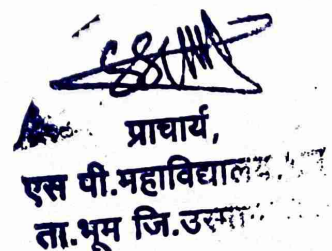 प्राचार्य,
एस पी.महाविद्यालय
ता.भूम जि.